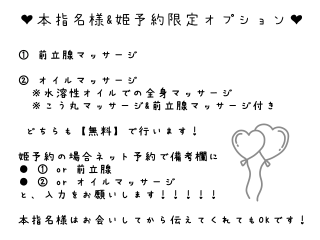 ♥本指名様&姫予約限定オプション♥
① 前立腺マッサージ
② オイルマッサージ
※水溶性オイルでの全身マッサージ
※こう丸マッサージ&前立腺マッサージ付き
どちらも【無料】で行います！
姫予約の場合ネット予約で備考欄に
● ① or 前立腺
● ② or オイルマッサージ
と、入力をお願いします！！！！！
本指名様はお会いしてから伝えてくれてもOKです！